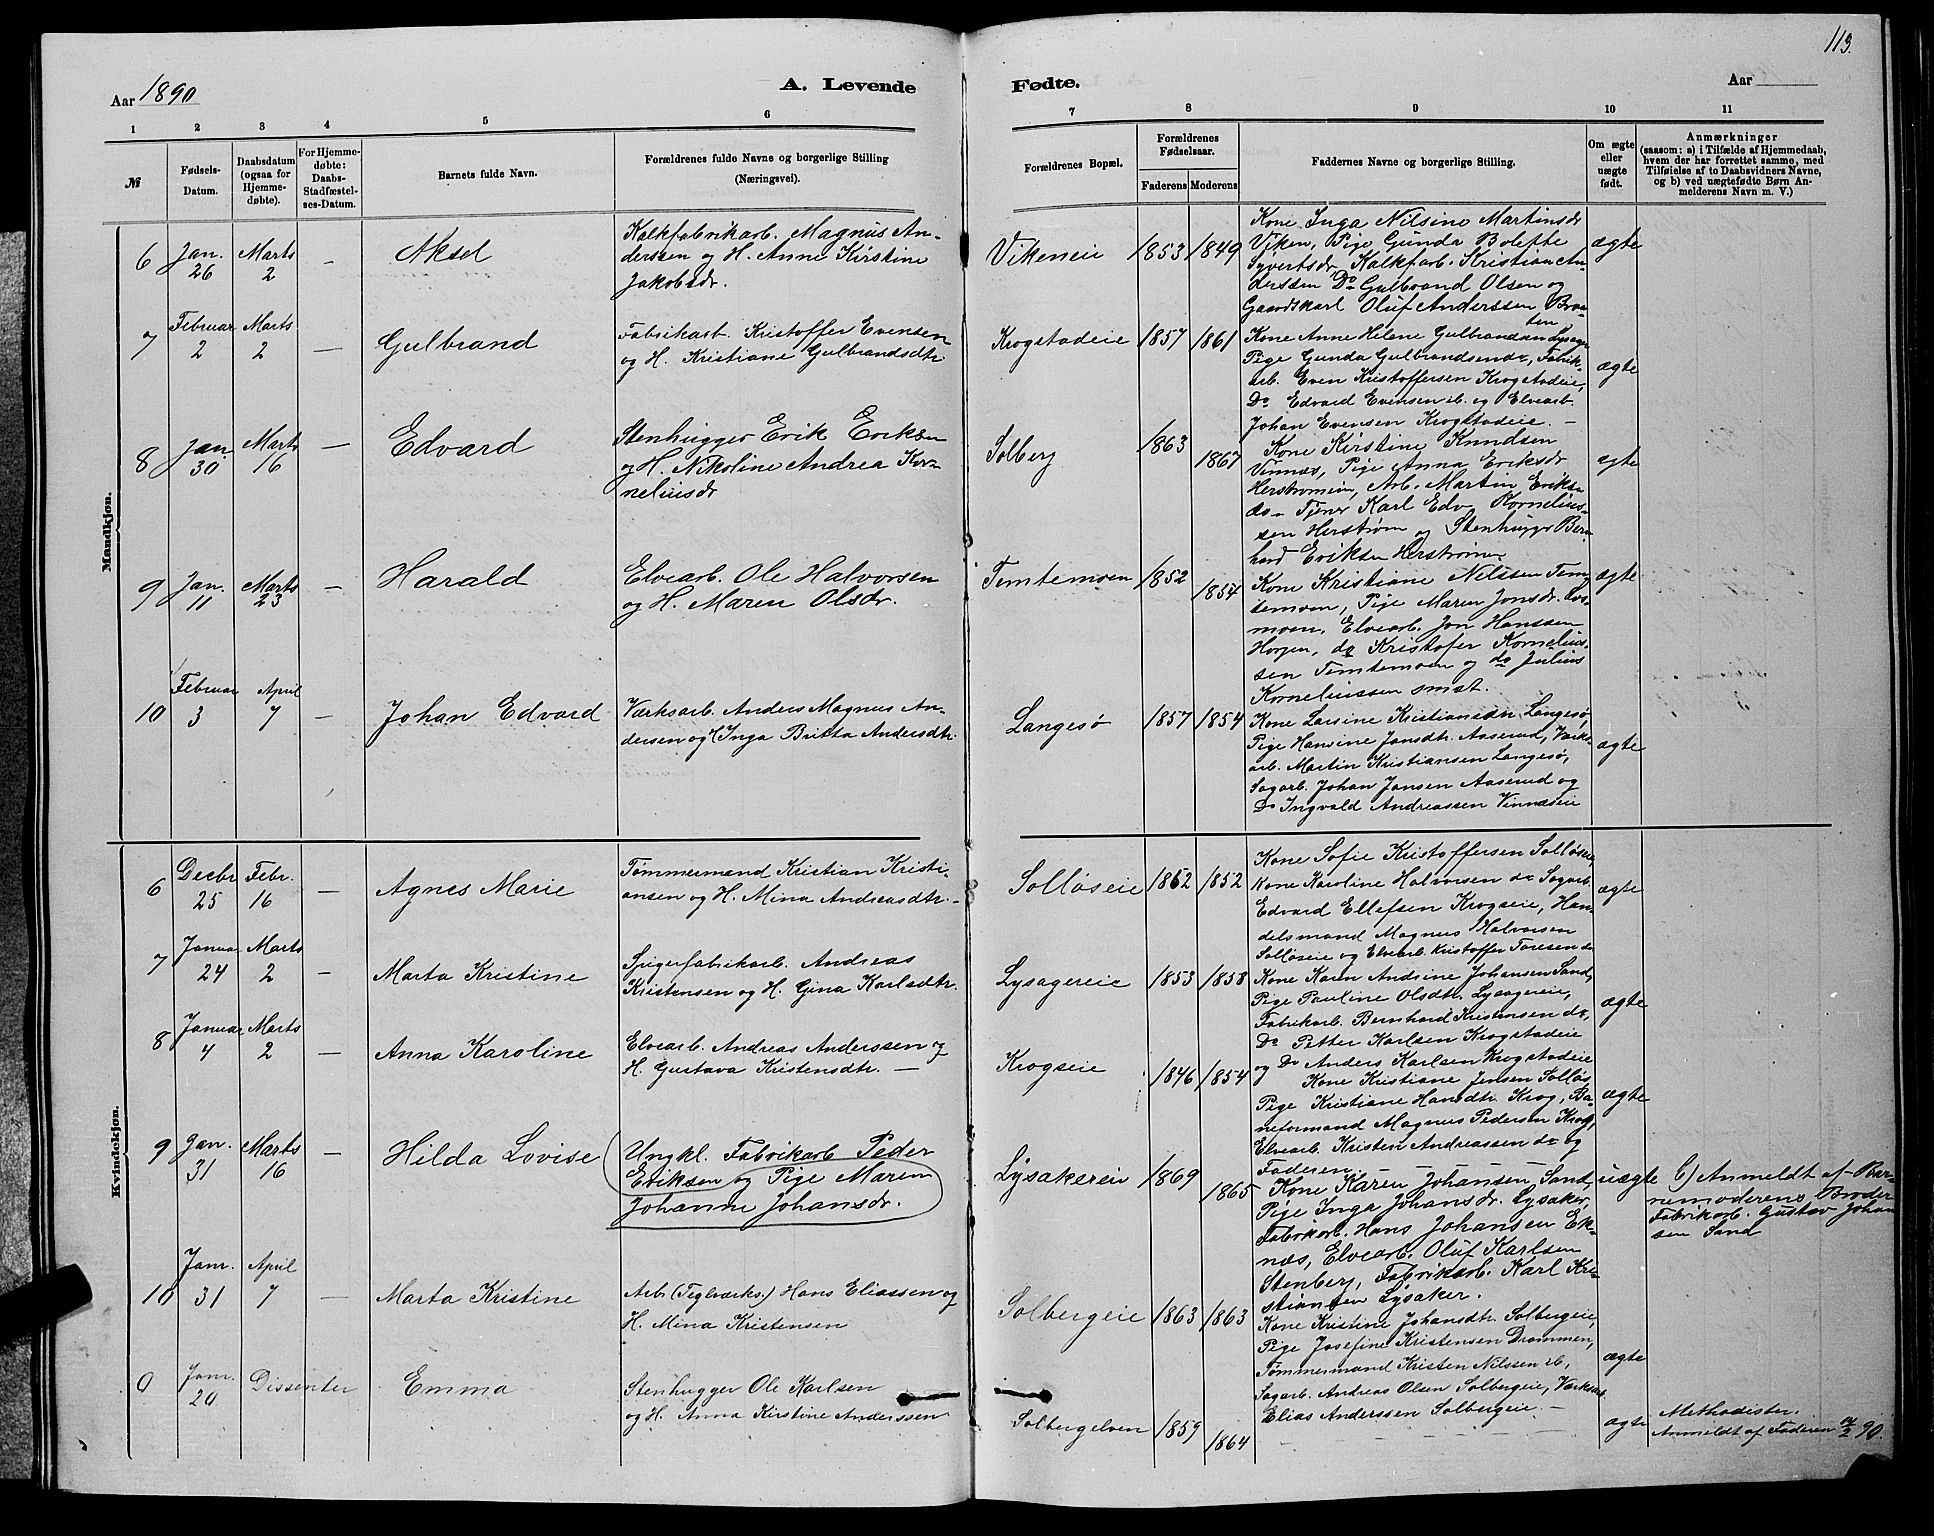 113.
Aar 1890
A. Levende
Fødte.
Aar
1 2 3 4 5 6
7 8 9 10 11
№
Fødsels-
Datum.
Daabsdatum
(ogsaa for
Hjemme-
døbte).
For Hjemme-
døbte:
Daabs-
Stadfæstel-
ses-Datum.
Barnets fulde Navn.
Forældrenes fulde Navne og borgerlige Stilling
(Næringsvei).
Forældrenes Bopæl.
Forældrenes
Fødselsaar.
Faderens Moderens
Faddernes Navne og borgerlige Stilling.
Om ægte
eller
uægte
født.
Anmærkninger
(saasom: a) i Tilfælde af Hjemmedaab,
hvem der har forrettet samme, med
Tilføielse af to Daabsvidners Navne,
og b) ved uægtefødte Børn An-
melderens Navn m. V.)
Mandkjøn.
6
Jan.
26
Marts
2
–
Aksel
Kalkfabrikarb. Magnus An-
derssen og H. Anne Kirstine
Jakobsdr.
Vikeneie
1853 1849
Kone Inga Nilsine Martinsdr
Viken, Pige Gunda Bolette
Syvertsdr, Kalkfarb. Kristian An-
derssen Do Gulbrand Olsen og
Gaardskarl Oluf Anderssen Bra-
ten
ægte
7
Februar
2
Marts
2
–
Gulbrand
Fabrikarb. Kristoffer Evensen
og H. Kristiane Gulbrandsdtr
Krogstadeie
1857 1861
Kone Anne Helene Gulbrandsen
Pige Gunda Gulbrandsendr, Fabrik-
arb. Even Kristoffersen Krogstadeie,
Do Edvard Evensen ib. og Elvearb.
Johan Evensen Krogstadeie. –
ægte
8
Jan.
30
Marts
16
–
Edvard
Stenhugger Erik Eriksen
og H. Nikoline Andrea Kor-
neliusdr
Solberg
1863
1867
Kone Kirstine Knudsen
Vinnæs, Pige Anna Eriksdr
Herstrømeie, Arb. Martin Eriks.
do – Tjener Karl Edv Kornelius-
sen Herstrøm og Stenhugger Bern
hard Eriksen Herstrøm
ægte
9
Jan.
11
Marts
23
–
Harald
Elvearb. Ole Halvorsen
og H. Maren Olsdr.
Temtemoen
1852
1854
Kone Kristiane Nilssen Tem-
temoen, Pige Maren Jonsdr. Los-
moen, Elvearb. Jon Hanssen
Horjen, do Kristofer Kornelius-
sen Temtemoen og do Julius
Korneliussen smst.
ægte
10
Februar
3
April
7
–
Johan Edvard
Værksarb. Anders Magnus An-
dersen og H Inga Britta Andersdtr.
Langesø
1857 1854
Kone Larsine Kristiansdtr Langesø,
Pige Hansine Jansdtr. Aaserud, Værks-
arb. Martin Kristiansen Langesø,
Sagarb. Johan Jansen Aaserud og
Do Ingvald Andreassen Vinnæseie
ægte
Kvindekjøn.
6
Decbr
25
Febr.
16
–
Agnes Marie
Tømmermand Kristian Kristi-
ansen og H. Mina Andreasdtr. –
Solløseie
1862 1852
Kone Sofie Kristoffersen Solløseie
Kone Karoline Halvorsen do Sagarb.
Edvard Ellefsen Krogseie, Han-
delsmand Magnus Halvorsen
Solløseie og Elvearb Kristoffer Toresen do
ægte
7
Januar
24
Marts
2
–
Marta Kristine
Spigerfabrikarb. Andreas
Kristensen og H. Gina Karlsdtr.
Lysagereie
1853 1858
Kone Karen Andrine Johansen Sand,
Pige Pauline Olsdtr. Lysagereie,
Fabrikarb. Bernhard Kristensen do,
Do Petter Karlsen Krogstadeie
og Do Anders Karlsen Krogstadeie
ægte
8
Januar
4
Marts
2
–
Anna Karoline
Elvearb. Andreas Anderssen og
H. Gustava Kristensdtr. –
Krogseie
1846 1854
Kone Kristiane Jensen Solløs
Pige Kristiane Hansdtr. Krog, Ba-
neformand Magnus Pedersen Krog,
Elvearb. Kristen Andreassen do og
Faderen
ægte
9
Jan.
31
Marts
16
–
Hilda Lovise
Ungkl. Fabrikarb Peder
Eriksen og Pige Maren
Johanne Johansdr.
Lysakereie
1869
1865
Kone Karen Johansen Sand,
Pige Inga Johansdr. Lysaker,
Fabrikarb. Hans Johansen Ek-
næs, Elvearb. Oluf Karlsen
Stenberg, Fabrikarb. Karl Kri-
stiansen Lysaker.
uægte
b) Anmeldt af Bar-
nemoderens Broder
Fabrikarb. Gustav Johan
sen Sand
10
Janr.
31
April
7
–
Marta Kristine
Arb (Teglværks.) Hans Eliassen og
H. Mina Kristensen
Solbergeie
1863 1863
Kone Kristine Johansdtr. Solbergeie,
Pige Josefine Kristensen Drammen,
Tømmermand Kristen Nilssen ib,
Sagarb. Andreas Olsen Solbergeie, Værksarb.
Elias Anderssen Solbergeie. –
ægte
0
Janr.
20
Dissenter
Emma
Stenhugger Ole Karlsen
og H. Anna Kirstine Anderssen
Solbergelven
1859
1864
ægte
Methodister.
Anmeldt af Faderen 90.